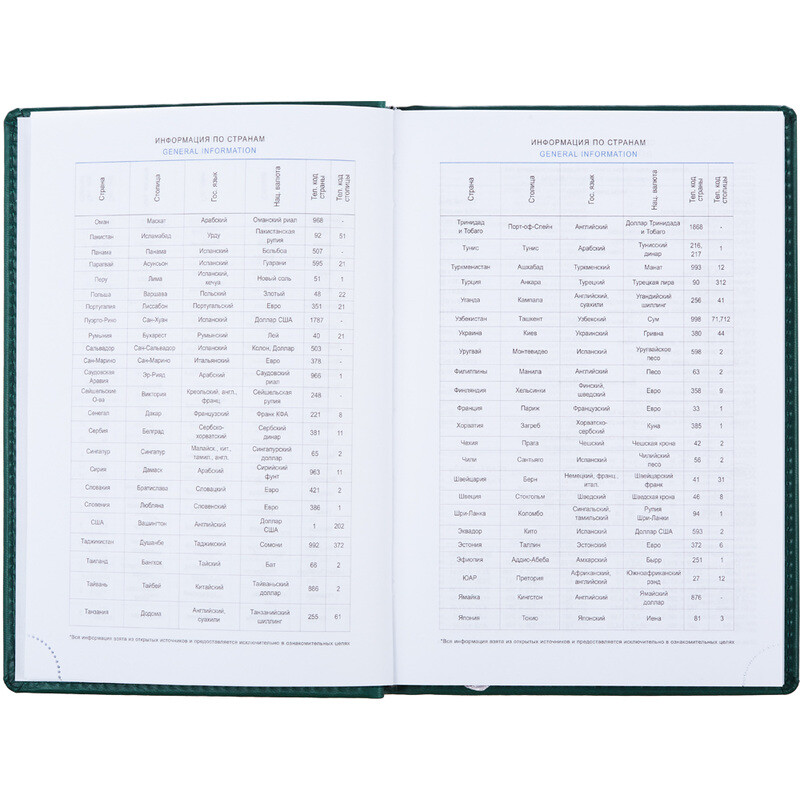 ИНФОРМАЦИЯ ПО СТРАНАМ
GENERAL INFORMATION
Страна Столица Гос. язык Нац. валюта Тел. код страны Тел. код столицы
Оман Маскат Арабский Оманский риал 968 -
Пакистан Исламабад Урду Пакистанская рупия 92 51
Панама Панама Испанский Бальбоа 507 -
Парагвай Асунсьон Испанский Гуарани 595 21
Перу Лима Испанский, кечуа Новый соль 51 1
Польша Варшава Польский Злотый 48 22
Португалия Лиссабон Португальский Евро 351 21
Пуэрто-Рико Сан-Хуан Испанский Доллар США 1787 -
Румыния Бухарест Румынский Лей 40 21
Сальвадор Сан-Сальвадор Испанский Колон, Доллар 503 -
Сан-Марино Сан-Марино Итальянский Евро 378 -
Саудовская Аравия Эр-Рияд Арабский Саудовский риал 966 1
Сейшельские О-ва Виктория Креольский, англ., франц. Сейшельская рупия 248 -
Сенегал Дакар Французский Франк КФА 221 8
Сербия Белград Сербско-хорватский Сербский динар 381 11
Сингапур Сингапур Малайск., кит., тамил., англ. Сингапурский доллар 65 2
Сирия Дамаск Арабский Сирийский фунт 963 11
Словакия Братислава Словацкий Евро 421 2
Словения Любляна Словенский Евро 386 1
США Вашингтон Английский Доллар США 1 202
Таджикистан Душанбе Таджикский Сомони 992 372
Таиланд Бангкок Тайский Бат 66 2
Тайвань Тайбей Китайский Тайваньский доллар 886 2
Танзания Додома Английский, суахили Танзанийский шиллинг 255 61
*Вся информация взята из открытых источников и предоставляется исключительно в ознакомительных целях
ИНФОРМАЦИЯ ПО СТРАНАМ
GENERAL INFORMATION
Страна Столица Гос. язык Нац. валюта Тел. код страны Тел. код столицы
Тринидад и Тобаго Порт-оф-Спейн Английский Доллар Тринидада и Тобаго 1868 -
Тунис Тунис Арабский Тунисский динар 216, 217 1
Туркменистан Ашхабад Туркменский Манат 993 12
Турция Анкара Турецкий Турецкая лира 90 312
Уганда Кампала Английский, суахили Угандийский шиллинг 256 41
Узбекистан Ташкент Узбекский Сум 998 71,712
Украина Киев Украинский Гривна 380 44
Уругвай Монтевидео Испанский Уругвайское песо 598 2
Филиппины Манила Английский Песо 63 2
Финляндия Хельсинки Финский, шведский Евро 358 9
Франция Париж Французский Евро 33 1
Хорватия Загреб Хорватско-сербский Куна 385 1
Чехия Прага Чешский Чешская крона 42 2
Чили Сантьяго Испанский Чилийский песо 56 2
Швейцария Берн Немецкий, франц., итал. Швейцарский франк 41 31
Швеция Стокгольм Шведский Шведская крона 46 8
Шри-Ланка Коломбо Сингальский, тамильский Рупия Шри-Ланки 94 1
Эквадор Кито Испанский Доллар США 593 2
Эстония Таллин Эстонский Евро 372 6
Эфиопия Аддис-Абеба Амхарский Бырр 251 1
ЮАР Претория Африканский, английский Южноафриканский рэнд 27 12
Ямайка Кингстон Английский Ямайский доллар 876 -
Япония Токио Японский Иена 81 3
*Вся информация взята из открытых источников и предоставляется исключительно в ознакомительных целях